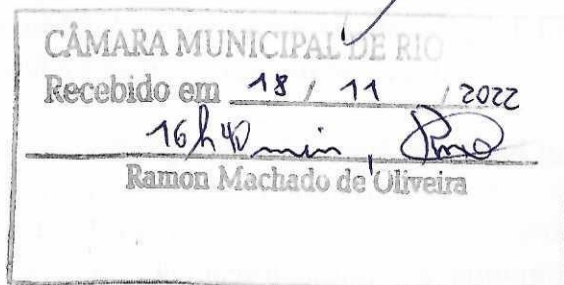 CÂMARA MUNICIPAL DE RIO
Recebido em 18 / 11 / 2022
16h40 min,
Ramon Machado de Oliveira